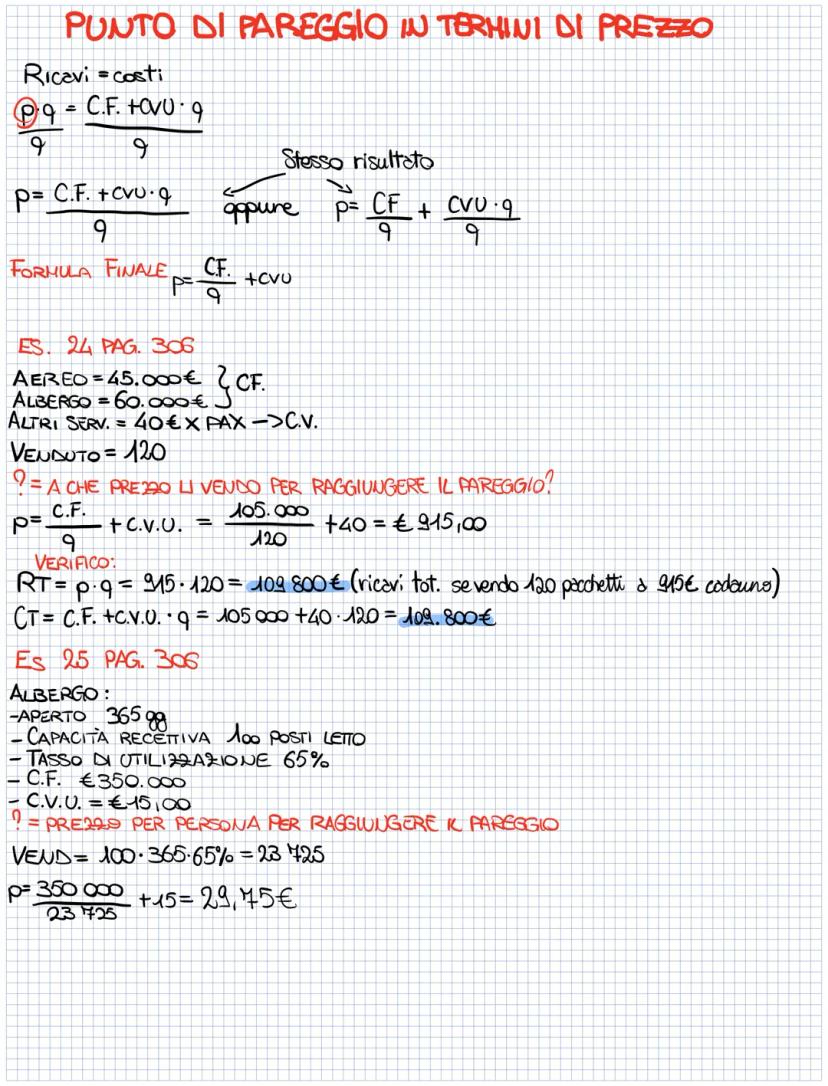 PUNTO DI PAREGGIO IN TERMINI DI PREZZO
Ricavi = costi
p·q = C.F. + CVU · q
q q
Stesso risultato
p= C.F. + CVU · q oppure p= CF + CVU · q
q q q
FORMULA FINALE p= C.F. + CVU
q
ES. 24 PAG. 306
AEREO = 45.000€ } CF.
ALBERGO = 60.000€
ALTRI SERV. = 40€ X PAX –> C.V.
VENDUTO = 120
? = A CHE PREZZO LI VENDO PER RAGGIUNGERE IL PAREGGIO?
p= C.F. + C.V.U. = 105.000 + 40 = € 915,00
q 120
VERIFICO:
RT = p·q = 915·120 = 109 800€ (ricavi tot. se vendo 120 pacchetti a 915€ cadauno)
CT = C.F. + C.V.U. · q = 105 000 + 40 · 120 = 109.800€
ES 25 PAG. 306
ALBERGO :
-APERTO 365 gg
- CAPACITÀ RECETTIVA 100 POSTI LETTO
- TASSO DI UTILIZZAZIONE 65%
- C.F. € 350.000
- C.V.U. = € 15,00
? = PREZZO PER PERSONA PER RAGGIUNGERE IL PAREGGIO
VEND = 100·365·65% = 23 725
p= 350 000 + 15 = 29,75€
23 725